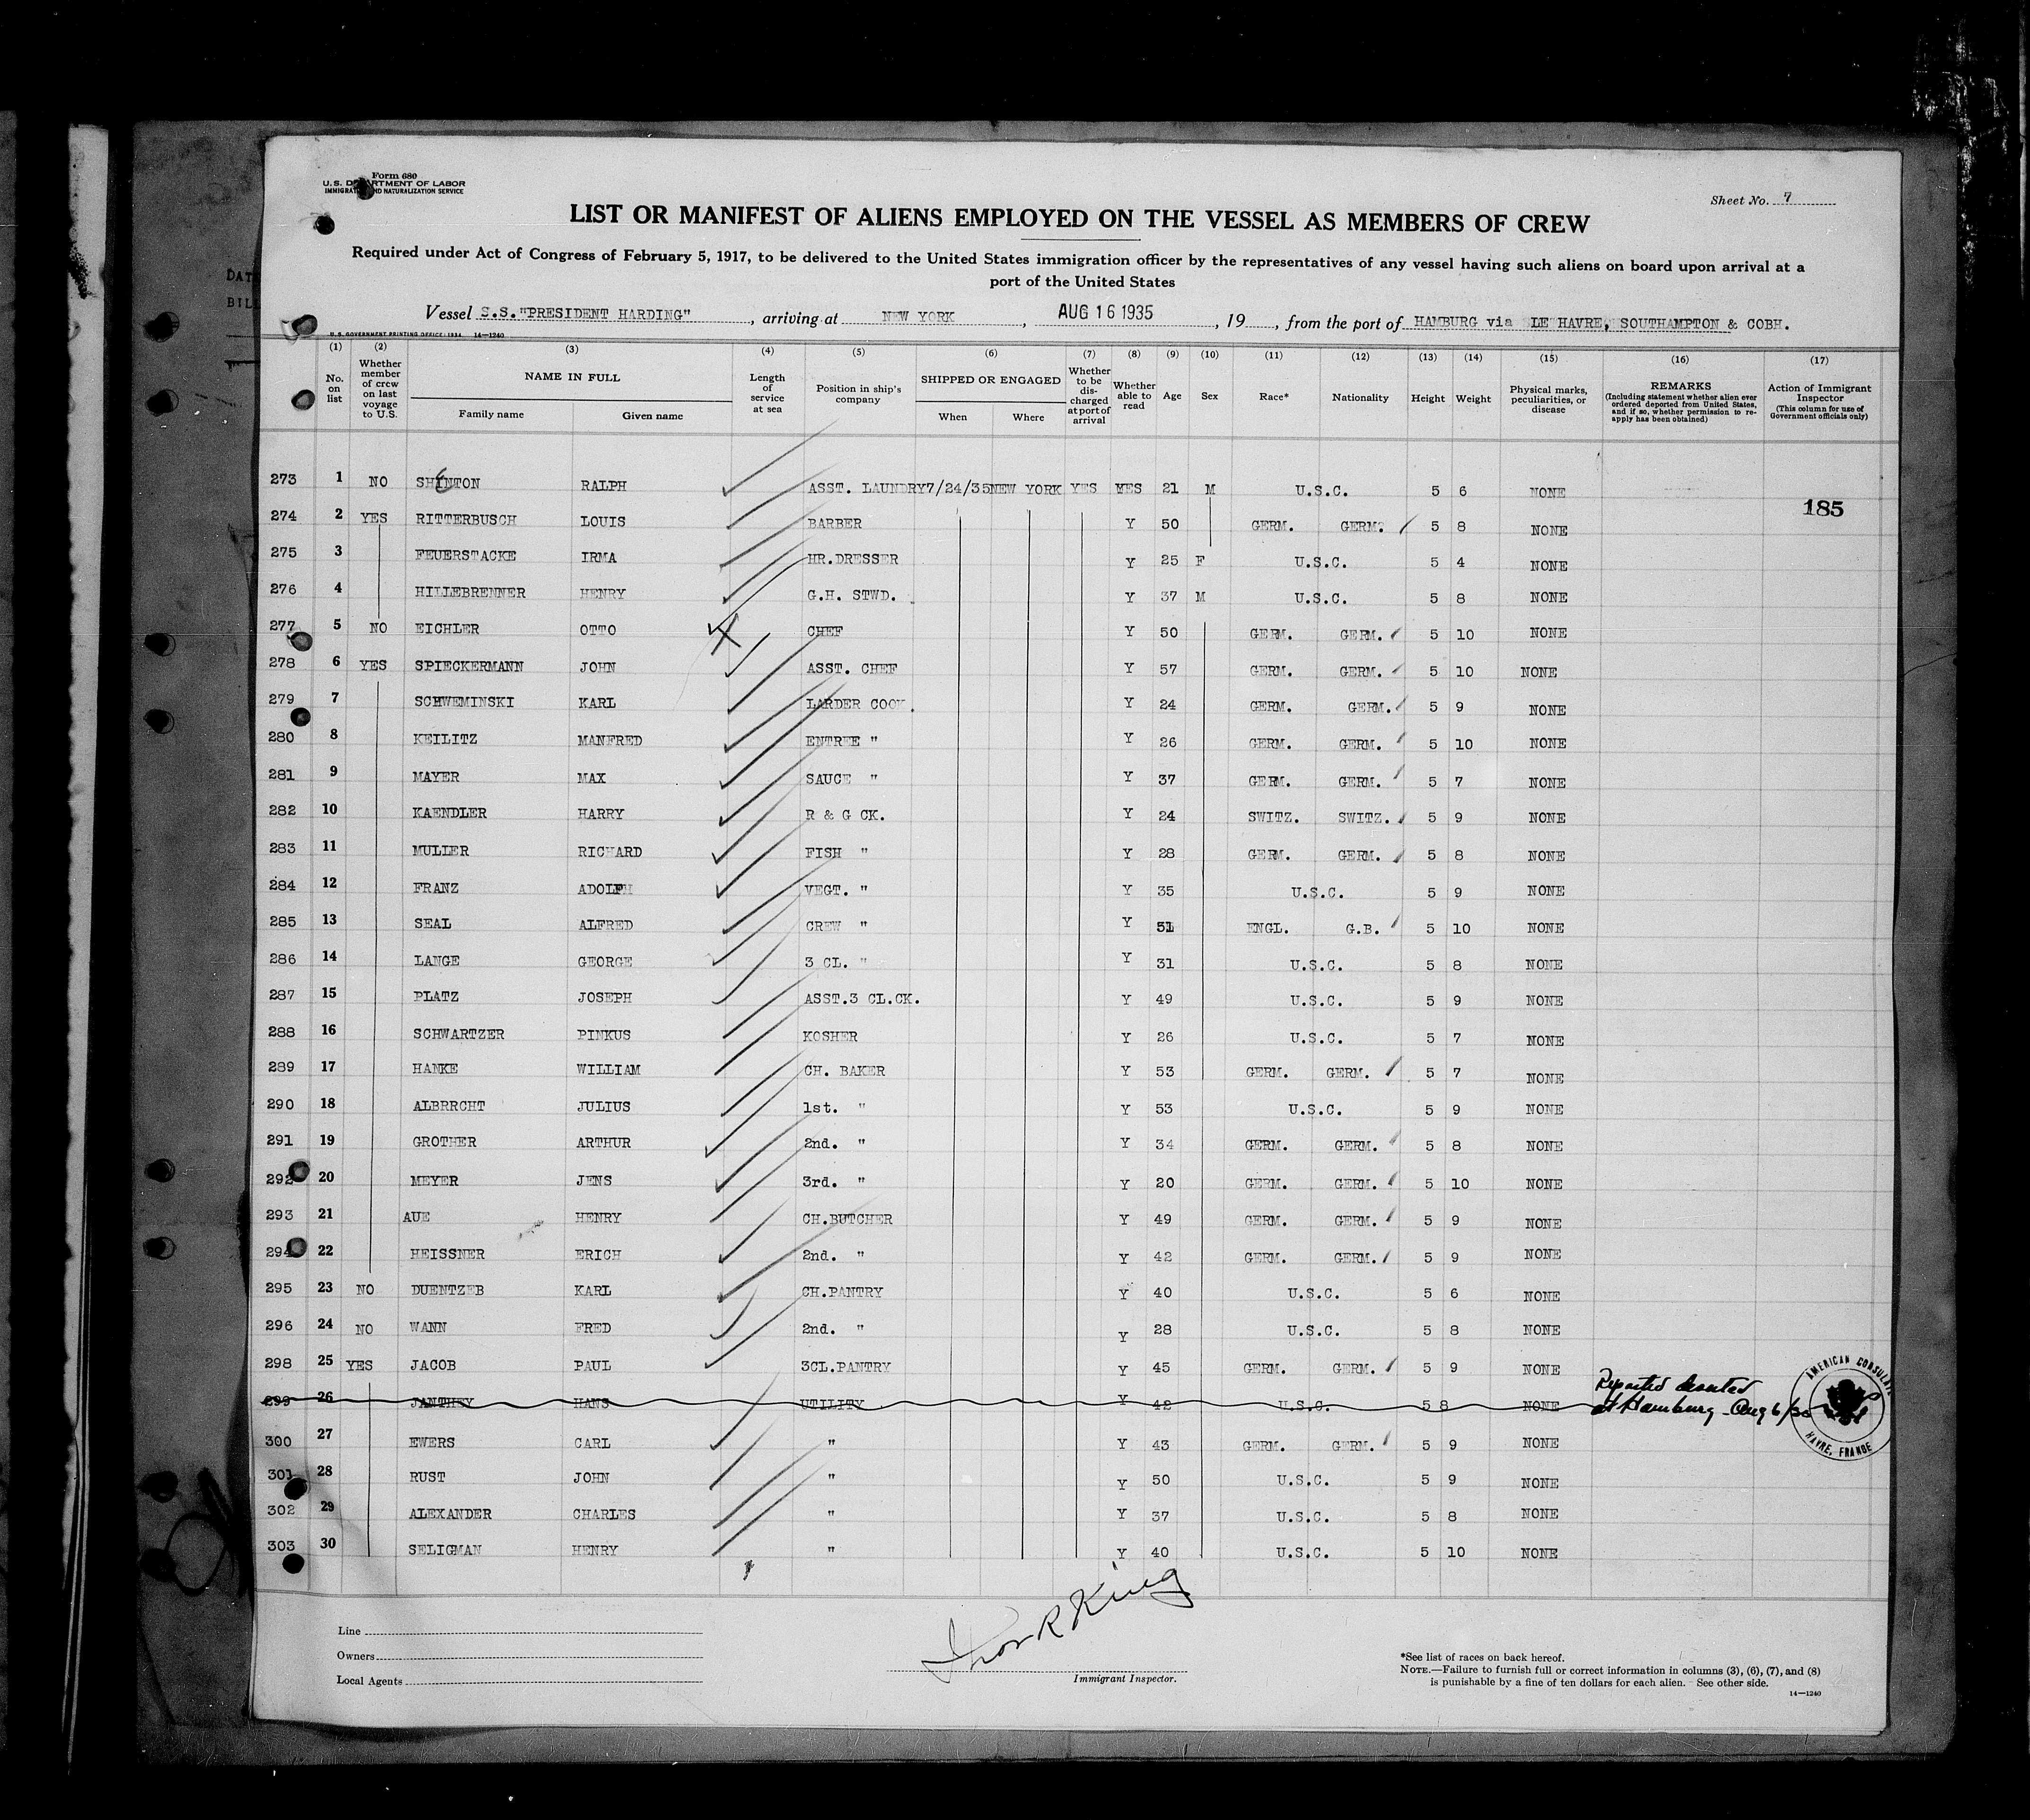 Form 680
U.S. DEPARTMENT OF LABOR
IMMIGRATION AND NATURALIZATION SERVICE
Sheet No. 7
LIST OR MANIFEST OF ALIENS EMPLOYED ON THE VESSEL AS MEMBERS OF CREW
Required under Act of Congress of February 5, 1917, to be delivered to the United States immigration officer by the representatives of any vessel having such aliens on board upon arrival at a
port of the United States
DAT
BIL
Vessel S.S."PRESIDENT HARDING", arriving at NEW YORK, AUG 16 1935, 19, from the port of HAMBURG via LE HAVRE, SOUTHAMPTON & COBH.
U.S. GOVERNMENT PRINTING OFFICE: 1934 14—1240
(1) (2) (3) (4) (5) (6) (7) (8) (9) (10) (11) (12) (13) (14) (15) (16) (17)
No. on list
Whether member of crew on last voyage to U.S.
NAME IN FULL
Family name Given name
Length of service at sea
Position in ship's company
SHIPPED OR ENGAGED
When Where
Whether to be discharged at port of arrival
Whether able to read
Age Sex Race* Nationality Height Weight
Physical marks, peculiarities, or disease
REMARKS
(Including statement whether alien ever ordered deported from United States, and if so, whether permission to reapply has been obtained)
Action of Immigrant Inspector
(This column for use of Government officials only)
273 1 NO SHENTON RALPH ASST. LAUNDRY 7/24/35 NEW YORK YES YES 21 M U.S.C. 5 6 NONE
185
274 2 YES RITTERBUSCH LOUIS BARBER Y 50 GERM. GERM. 5 8 NONE
275 3 FEUERSTACKE IRMA HR.DRESSER Y 25 F U.S.C. 5 4 NONE
276 4 HILLEBRENNER HENRY G.H. STWD. Y 37 M U.S.C. 5 8 NONE
277 5 NO EICHLER OTTO CHEF Y 50 GERM. GERM. 5 10 NONE
278 6 YES SPIECKERMANN JOHN ASST. CHEF Y 57 GERM. GERM. 5 10 NONE
279 7 SCHWEMINSKI KARL LARDER COOK. Y 24 GERM. GERM. 5 9 NONE
280 8 KEILITZ MANFRED ENTREE " Y 26 GERM. GERM. 5 10 NONE
281 9 MAYER MAX SAUCE " Y 37 GERM. GERM. 5 7 NONE
282 10 KAENDLER HARRY R & G CK. Y 24 SWITZ. SWITZ. 5 9 NONE
283 11 MULLER RICHARD FISH " Y 28 GERM. GERM. 5 8 NONE
284 12 FRANZ ADOLFH VEGT. " Y 35 U.S.C. 5 9 NONE
285 13 SEAL ALFRED CREW " Y 51 ENGL. G.B. 5 10 NONE
286 14 LANGE GEORGE 3 CL. " Y 31 U.S.C. 5 8 NONE
287 15 PLATZ JOSEPH ASST.3 CL.CK. Y 49 U.S.C. 5 9 NONE
288 16 SCHWARTZER PINKUS KOSHER Y 26 U.S.C. 5 7 NONE
289 17 HANKE WILLIAM CH. BAKER Y 53 GERM. GERM. 5 7 NONE
290 18 ALBRRCHT JULIUS 1st. " Y 53 U.S.C. 5 9 NONE
291 19 GROTHER ARTHUR 2nd. " Y 34 GERM. GERM. 5 8 NONE
292 20 MEYER JENS 3rd. " Y 20 GERM. GERM. 5 10 NONE
293 21 AUE HENRY CH.BUTCHER Y 49 GERM. GERM. 5 9 NONE
294 22 HEISSNER ERICH 2nd. " Y 42 GERM. GERM. 5 9 NONE
295 23 NO DUENTZEB KARL CH.PANTRY Y 40 U.S.C. 5 6 NONE
296 24 NO WANN FRED 2nd. " Y 28 U.S.C. 5 8 NONE
298 25 YES JACOB PAUL 3CL.PANTRY Y 45 GERM. GERM. 5 9 NONE
299 26 JANTHEY HANS UTILITY Y 42 U.S.C. 5 8 NONE
Reported deserted
at Hamburg - Aug 6/35
AMERICAN CONSULATE
HAVRE, FRANCE
300 27 EWERS CARL " Y 43 GERM. GERM. 5 9 NONE
301 28 RUST JOHN " Y 50 U.S.C. 5 9 NONE
302 29 ALEXANDER CHARLES " Y 37 U.S.C. 5 8 NONE
303 30 SELIGMAN HENRY " Y 40 U.S.C. 5 10 NONE
Line
Owners
Local Agents
King
Immigrant Inspector.
*See list of races on back hereof.
NOTE.—Failure to furnish full or correct information in columns (3), (6), (7), and (8)
is punishable by a fine of ten dollars for each alien. See other side.
14—1240